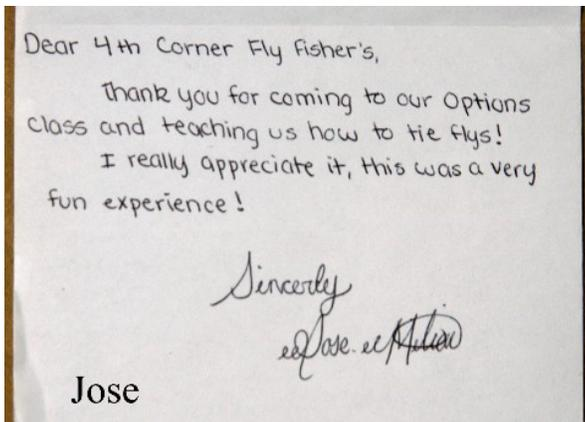 Dear 4th Corner Fly Fisher's,
Thank you for coming to our Options
class and teaching us how to tie flys!
I really appreciate it, this was a very
fun experience!
Sincerly
Jose
Jose